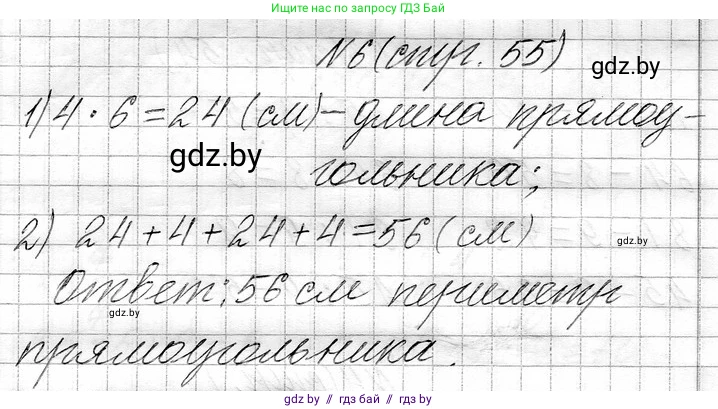 Ищите нас по запросу ГДЗ Бай
N6 (стр. 55)
gdz.by
1) 4 · 6 = 24 (см) – длина прямоу-
gdz.by
гольника;
2) 24 + 4 + 24 + 4 = 56 (см)
gdz.by
Ответ: 56 см периметр
gdz.by
прямоугольника.
gdz.by // гдз бай // gdz.by